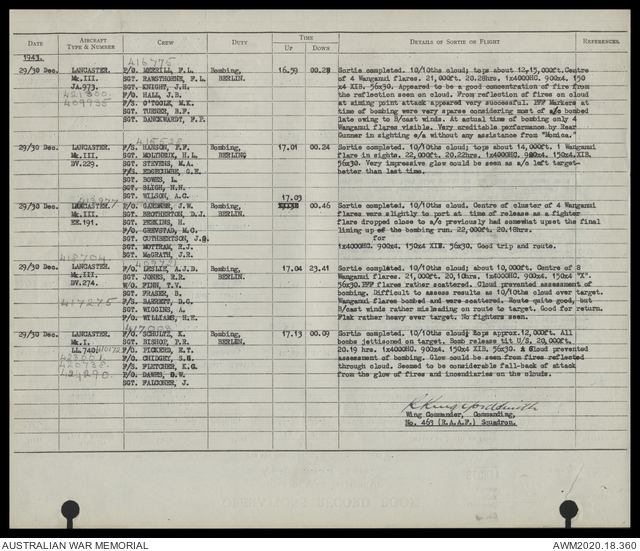 DATE AIRCRAFT TYPE & NUMBER CREW DUTY TIME UP DOWN DETAILS OF SORTIE OR FLIGHT REFERENCES.
1943.
416775
29/30 Dec. LANCASTER. P/O. MERRILL, F.L. Bombing, 16.59 00.28 Sortie completed. 10/10ths cloud; tops about 12,-15,000ft. Centre
Mk.III. SGT. RAWSTHORNE, F.L. BERLIN. of 4 Wanganui flares. 21,000ft. 20.28hrs. 1x4000HC. 900x4. 150
JA.973. SGT. KNIGHT, J.H. x4 XIB. 56x30. Appeared to be a good concentration of fire from
F/O. HALL, J.B. the reflection seen on cloud. From reflection of fires on cloud
409935 F/S. O'TOOLE, M.K. at aiming point attack appeared very successful. PFF Markers at
SGT. TURNER, B.F. time of bombing were very sparse considering most of a/c bombed
SGT. DANCKWARDT, F.P. late owing to B/cast winds. At actual time of bombing only 4
Wanganui flares visible. Very creditable performance by Rear
Gunner in sighting e/a without any assistance from "Monica."
29/30 Dec. LANCASTER. F/S. HANSON, F.F. Bombing, 17.01 00.24 Sortie completed. 10/10ths cloud; tops about 14,000ft. 1 Wanganui
Mk.III. SGT. MOLYNEUX, H.L. BERLING flare in sights. 22,000ft. 20.22hrs. 1x4000HC. 900x4. 150x4.XIB.
DV.229. SGT. STEVENS, M.A. 56x30. Very impressive glow could be seen as a/c left target-
F/S. EDGECUMBE, G.E. better than last time.
SGT. BOWES, L.
SGT. BLIGH, N.N.
SGT. WILSON, A.C. 17.03
29/30 Dec. LANCASTER. P/O. GARDNER, J.W. Bombing, 00.46 Sortie completed. 10/10ths cloud. Centre of cluster of 4 Wanganui
Mk.III. SGT. BROTHERTON, D.J. BERLIN. flares were slightly to port at time of release as a fighter
EE.191. SGT. PERKINS, H. flare dropped close to a/c previously had somewhat upset the final
F/O. GRENSTAD, M.G. lining up of the bombing run. 22,000ft. 20.18hrs.
SGT. CUTHBERTSON, J.G. for
SGT. MOTTRAM, R.J. 1x4000HC. 900x4. 150x4 XIB. 56x30. Good trip and route.
418704 SGT. McGRATH, J.R.
29/30 Dec. LANCASTER. F/O. LESLIE, A.J.D. Bombing, 17.04 23.41 Sortie completed. 10/10ths cloud; about 10,000ft. Centre of 8
Mk.III. SGT. JONES, R.R. BERLIN. Wanganui flares. 21,000ft, 20,18hrs. 1x4000HC. 900x4. 150x4 "X".
DV.274. W/O. FINN, T.V. 56x30.PFF flares rather scattered. Cloud prevented assessment of
SGT. FRASER, B. bombing. Difficult to assess results as 10/10ths cloud over target.
417275 F/S. BARRETT, D.G. Wanganui flares bombed and were scattered. Route quite good, but
SGT. WIGGINS, A. B/cast winds rather misleading on route to target. Good for return.
F/O. WILLIAMS, H.E. Flak rather heavy over target. No fighters seen.
29/30 Dec. LANCASTER. F/O. SCHULTZ, K. Bombing, 17.13 00.09 Sortie completed. 10/10ths cloud; tops approx.12,000ft. All
Mk.I. SGT. BISHOP, P.R. BERLIN. bombs jettisoned on target. Bomb release tit U/S. 20,000ft.
LL.740. F/O. PICKERD, E.T. 20.19 hrs. 1x4000HC. 900x4. 150x4 XIB, 56x30. Cloud prevented
F/O. CHIDGEY, S.G. assessment of bombing. Glow could be seen from fires reflected
420738. F/S. FLETCHER, K.G. through cloud. Seemed to be considerable fall-back of attack
424290. F/O. DAWES, O.W. from the glow of fires and incendiaries on the clouds.
SGT. FALCONER, J.
Wing Commander, Commanding,
No. 463 (R.A.A.F.) Squadron.
AUSTRALIAN WAR MEMORIAL AWM2020.18.360